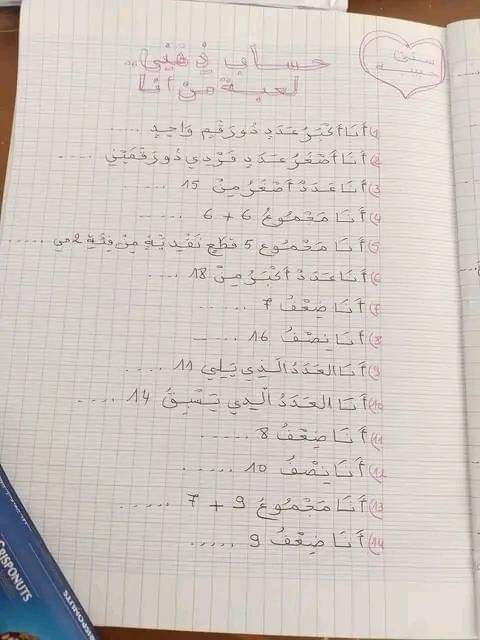 حساب ذهني
لعبة من أنا
سنتي
خمسة
1) أَنَا أَكْبَرُ عَدَدٍ ذُو رَقْمٍ وَاحِدٍ .....
2) أَنَا أَصْغَرُ عَدَدٍ فَرْدِي ذُو رَقْمَيْنِ .....
3) أَنَا عَدَدٌ أَصْغَرُ مِنْ 15 .....
4) أَنَا مَجْمُوعُ 6 + 6 .....
5) أَنَا مَجْمُوع 5 قِطَعٍ نَقْدِيَّةٍ مِنْ فِئَةِ 2 مي .....
6) أَنَا عَدَدٌ أَكْبَرُ مِنْ 18 .....
7) أَنَا ضِعْفُ 7 .....
8) أَنَا نِصْفُ 16 .....
9) أَنَا العَدَدُ الَّذِي يَلِي 11 .....
10) أَنَا العَدَدُ الَّذِي يَسْبِقُ 14 .....
11) أَنَا ضِعْفُ 8 .....
12) أَنَا نِصْفُ 10 .....
13) أَنَا مَجْمُوعُ 9 + 7 .....
14) أَنَا ضِعْفُ 9 .....
CRISPONUTS